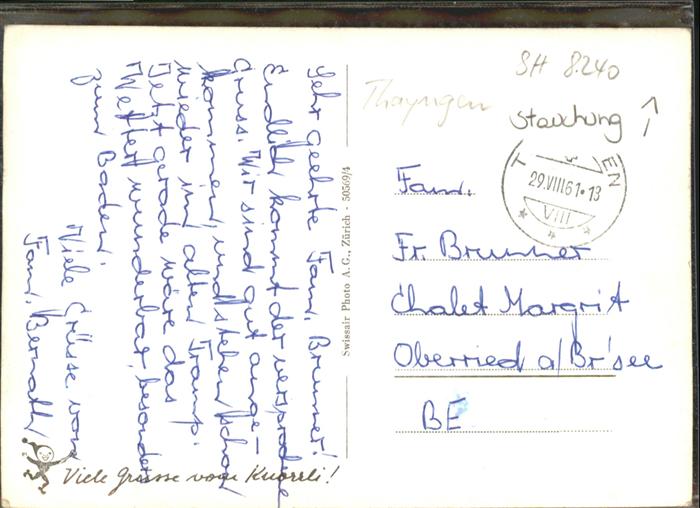 Sehr geehrte Fam. Brunner!
Endlich kommt der versprochene
Gruss. Wir sind gut ange-
kommen, und stehen schon
wieder im alten Tramp.
Jetzt gerade wäre das
Wetter wunderbar, besonders
zum Baden.
Viele Grüsse von
Fam. Bernath
Viele Grüsse vom Knorrli!
Swissair Photo A.G., Zürich - 50569/4
SH 8240
Thayngen
Stauchung
T EN
29.VIII 61-13
VIII
Fam.
Fr. Brunner
Chalet Margrit
Oberried a/Br'see
BE